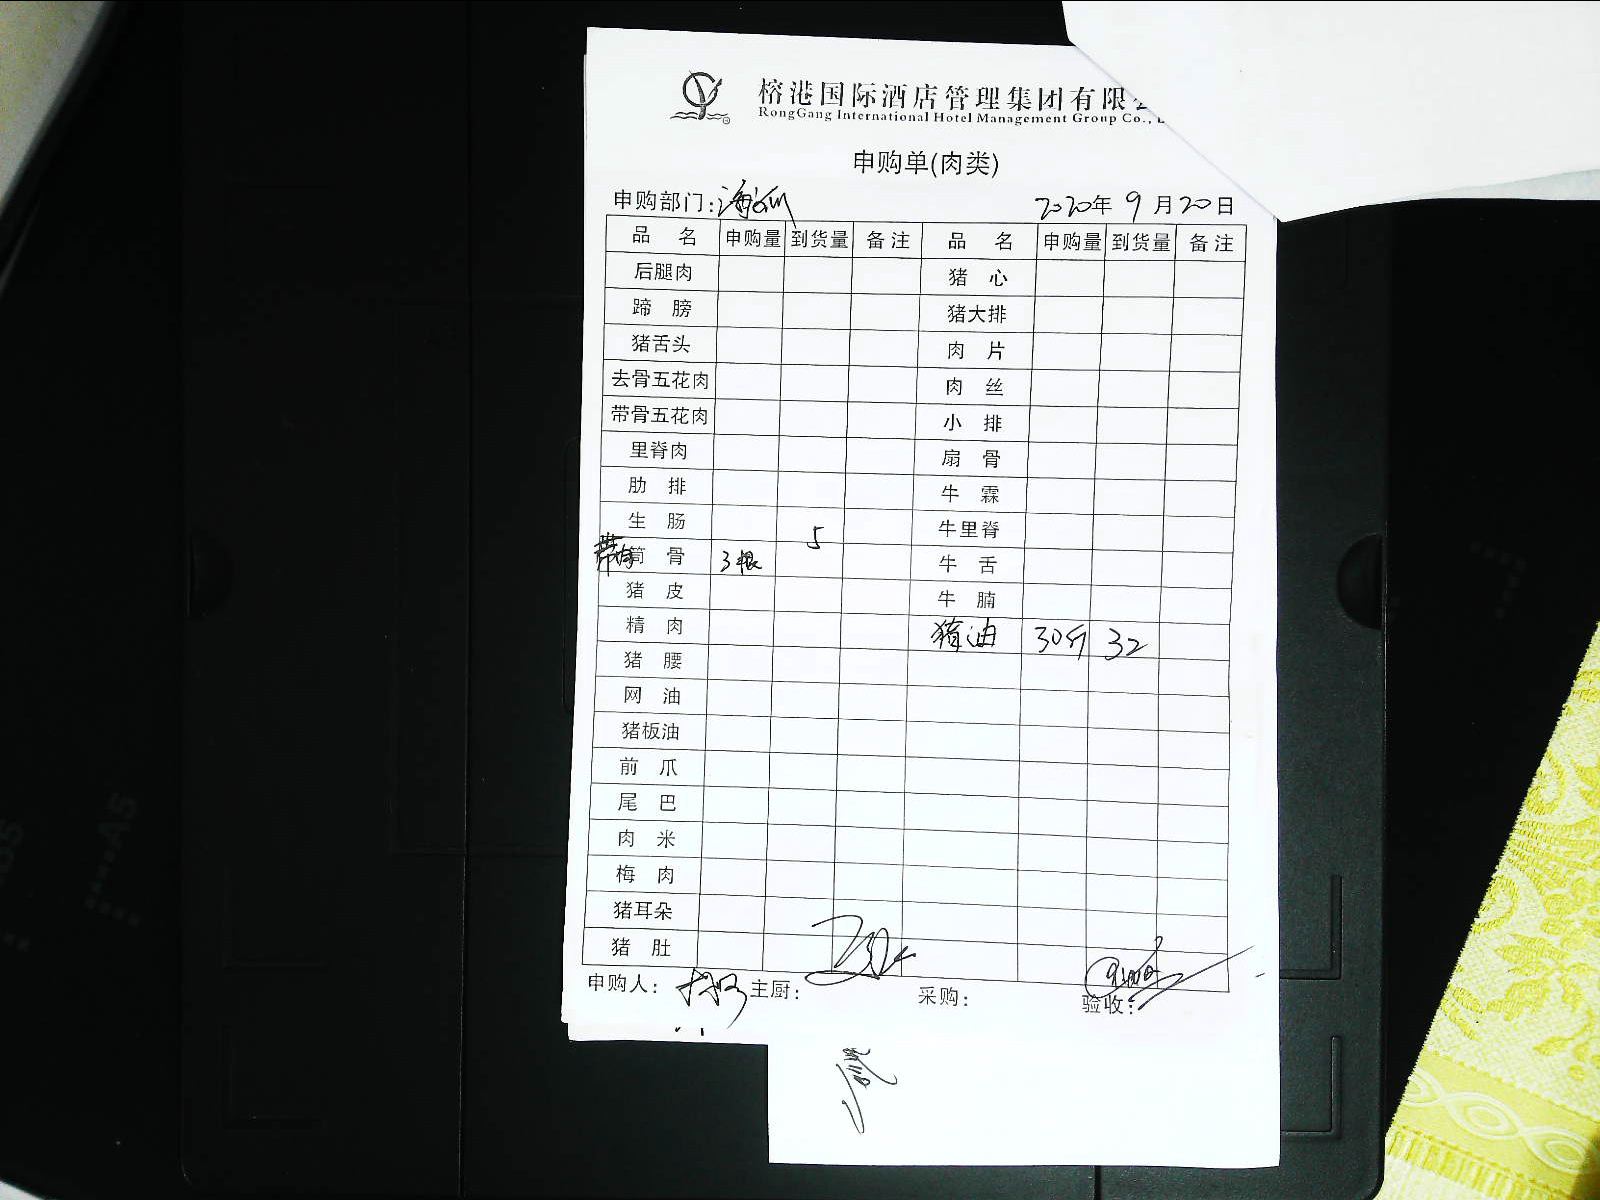 榕港国际酒店管理集团有限
RongGang International Hotel Management Group Co.,
申购单(肉类)
申购部门: 2020年9月20日
品 名 申购量 到货量 备注 品 名 申购量 到货量 备注
后腿肉 猪 心
蹄 膀 猪大排
猪舌头 肉 片
去骨五花肉 肉 丝
带骨五花肉 小 排
里脊肉 扇 骨
肋 排 牛 霖
生 肠 牛里脊
带肉筒 骨 3根 5 牛 舌
猪 皮 牛 腩
精 肉 猪油 30斤 32
猪 腰
网 油
猪板油
前 爪
尾 巴
肉 米
梅 肉
猪耳朵
猪 肚
申购人: 主厨: 采购: 验收:
A5